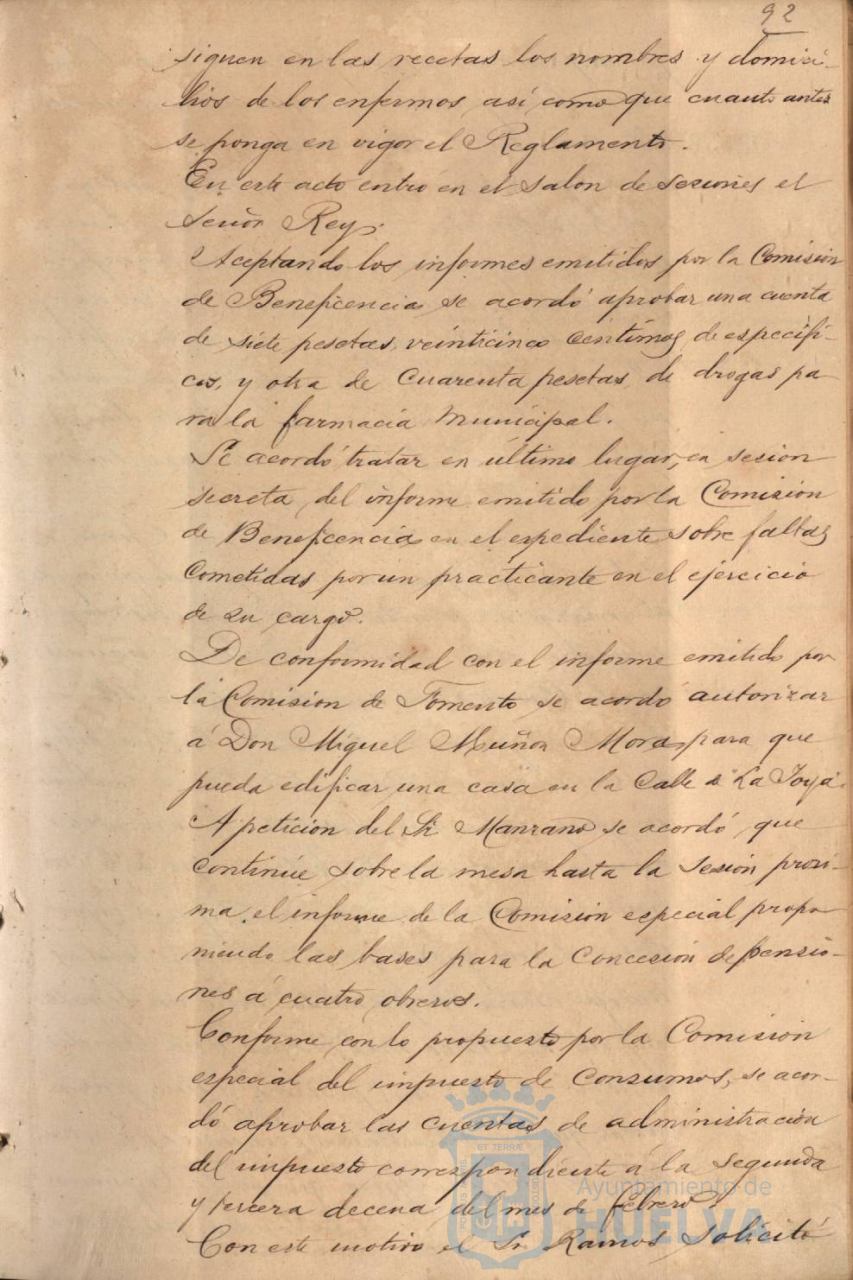 92
siguen en las recetas los nombres y domici-
lios de los enfermos así como que cuanto antes
se ponga en vigor el Reglamento.
En este acto entró en el salon de sesiones el
Señor Rey.
Aceptando los informes emitidos por la Comisión
de Beneficencia se acordó aprobar una cuenta
de siete pesetas veinticinco centimos de especifi-
cos, y otra de cuarenta pesetas de drogas pa-
ra la farmacia municipal.
Se acordó tratar en último lugar, en sesion
secreta del informe emitido por la Comision
de Beneficencia en el espediente sobre faltas
cometidas por un practicante en el ejercicio
de su cargo.
De conformidad con el informe emitido por
la Comision de Fomento se acordó autorizar
á Don Miguel Muñoz Mora para que
pueda edificar una casa en la Calle de La Joya.
A peticion del Sr Manzano se acordó que
continúe sobre la mesa hasta la sesión proxi-
ma el informe de la Comisión especial propo-
niendo las bases para la concesión de pensio-
nes á cuatro obreros.
Conforme con lo propuesto por la Comision
especial del impuesto de Consumos, se acor-
dó aprobar las cuentas de administración
del impuesto correspondiente á la segunda
y tercera decena del mes de febrero.
Con este motivo el Sr. Ramos solicitó
ET TERRÆ
Ayuntamiento de
HUELVA